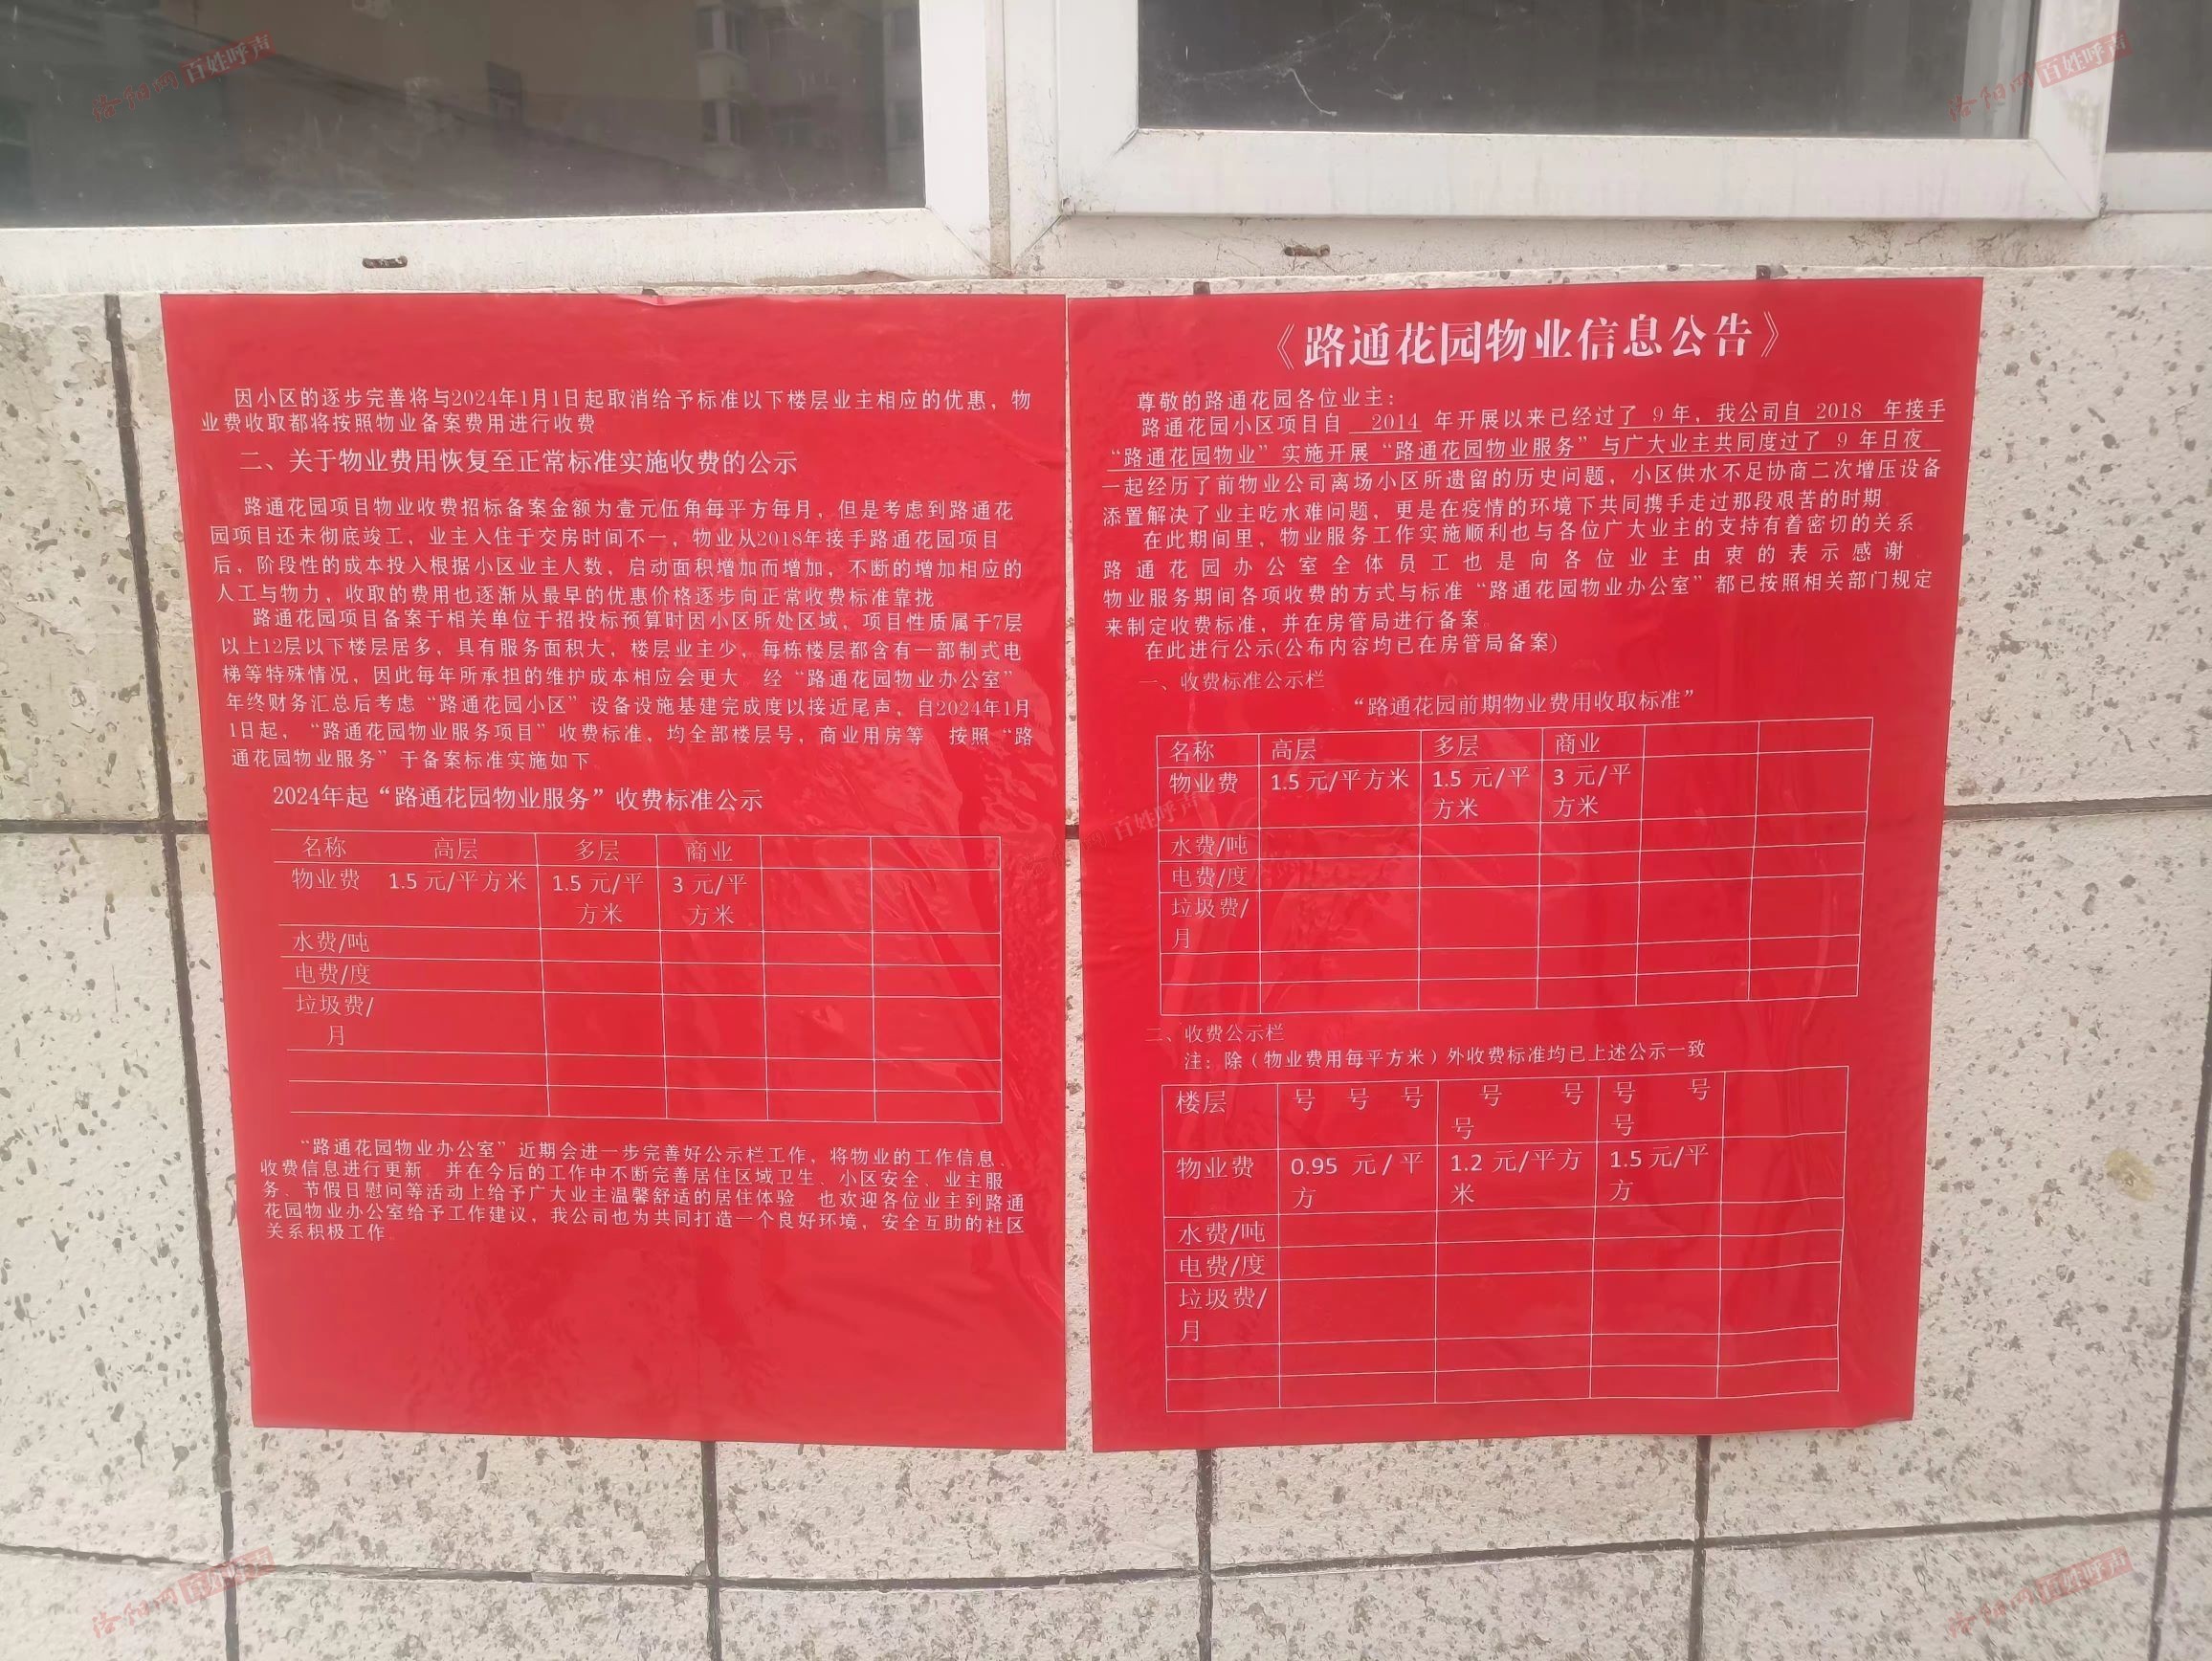 《路通花园物业信息公告》
尊敬的路通花园各位业主：
路通花园小区项目自 2014 年开展以来已经过了 9 年，我公司自 2018 年接手
“路通花园物业”实施开展“路通花园物业服务”与广大业主共同度过了 9 年日夜
一起经历了前物业公司离场小区所遗留的历史问题，小区供水不足协商二次增压设备
添置解决了业主吃水难问题，更是在疫情的环境下共同携手走过那段艰苦的时期
在此期间里，物业服务工作实施顺利也与各位广大业主的支持有着密切的关系
路通花园办公室全体员工也是向各位业主由衷的表示感谢
物业服务期间各项收费的方式与标准“路通花园物业办公室”都已按照相关部门规定
来制定收费标准，并在房管局进行备案。
在此进行公示(公布内容均已在房管局备案)
一、收费标准公示栏
“路通花园前期物业费用收取标准”
名称 高层 多层 商业
物业费 1.5 元/平方米 1.5 元/平 3 元/平
方米 方米
水费/吨
电费/度
垃圾费/
月
二、收费公示栏
注：除（物业费用每平方米）外收费标准均已上述公示一致
楼层 号 号 号 号 号 号 号
号 号
物业费 0.95 元/平 1.2 元/平方 1.5 元/平
方 米 方
水费/吨
电费/度
垃圾费/
月
因小区的逐步完善将与2024年1月1日起取消给予标准以下楼层业主相应的优惠，物
业费收取都将按照物业备案费用进行收费
二、关于物业费用恢复至正常标准实施收费的公示
路通花园项目物业收费招标备案金额为壹元伍角每平方每月，但是考虑到路通花
园项目还未彻底竣工，业主入住于交房时间不一，物业从2018年接手路通花园项目
后，阶段性的成本投入根据小区业主人数，启动面积增加而增加，不断的增加相应的
人工与物力，收取的费用也逐渐从最早的优惠价格逐步向正常收费标准靠拢
路通花园项目备案于相关单位于招投标预算时因小区所处区域，项目性质属于7层
以上12层以下楼层居多，具有服务面积大，楼层业主少，每栋楼层都含有一部制式电
梯等特殊情况，因此每年所承担的维护成本相应会更大 经“路通花园物业办公室”
年终财务汇总后考虑“路通花园小区”设备设施基建完成度以接近尾声，自2024年1月
1日起，“路通花园物业服务项目”收费标准，均全部楼层号，商业用房等 按照“路
通花园物业服务”于备案标准实施如下
2024年起“路通花园物业服务”收费标准公示
名称 高层 多层 商业
物业费 1.5 元/平方米 1.5 元/平 3 元/平
方米 方米
水费/吨
电费/度
垃圾费/
月
“路通花园物业办公室”近期会进一步完善好公示栏工作，将物业的工作信息、
收费信息进行更新 并在今后的工作中不断完善居住区域卫生、小区安全、业主服
务、节假日慰问等活动上给予广大业主温馨舒适的居住体验 也欢迎各位业主到路通
花园物业办公室给予工作建议，我公司也为共同打造一个良好环境，安全互助的社区
关系积极工作。
洛阳网 百姓呼声
洛阳网 百姓呼声
洛阳网 百姓呼声
洛阳网 百姓呼声
洛阳网 百姓呼声